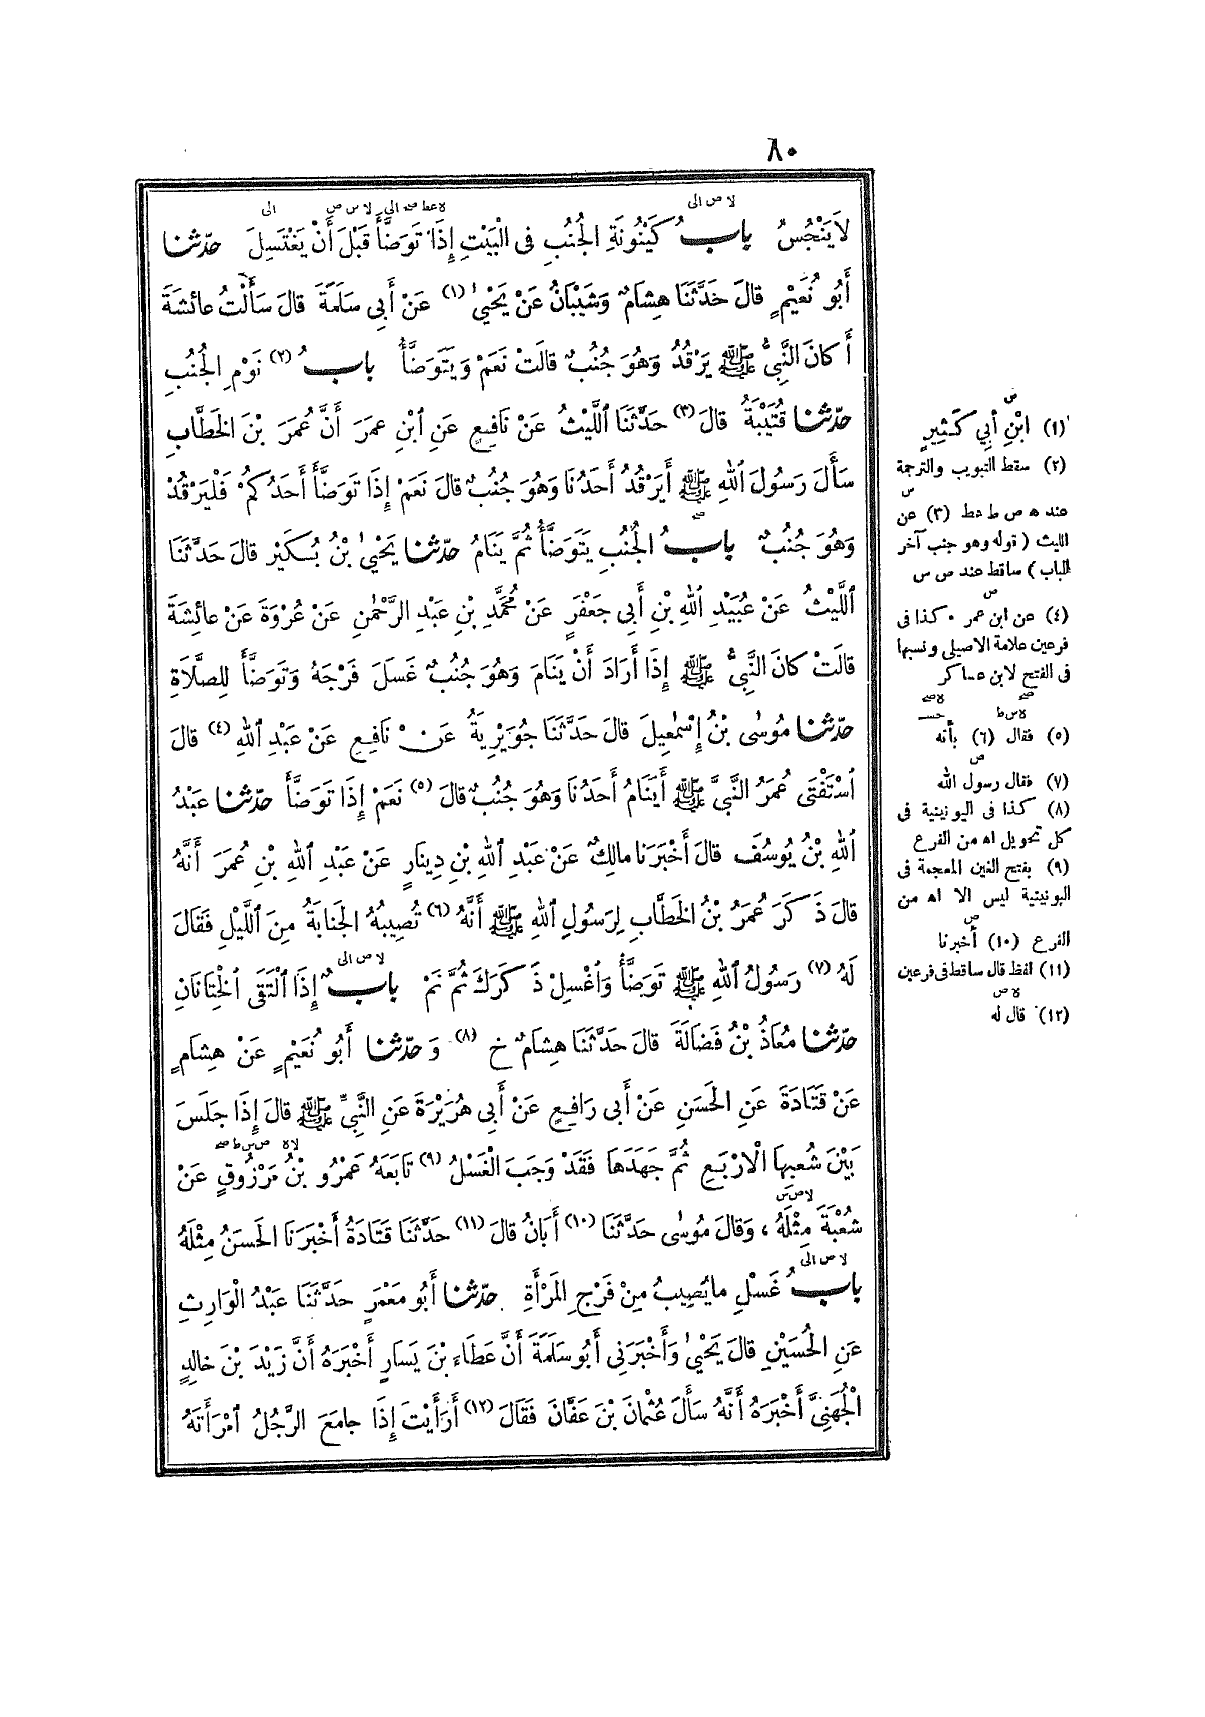 ٨٠
لا ص الى لاعط صه الى لا س ص الى
لاَيَنْجُسُ بابُ كَيْنُونَةِ الجُنُبِ فى الْبَيْتِ إِذَا تَوَضَّأَ قَبْلَ أَنْ يَغْتَسِلَ حدّثنا
أَبُو نُعَيْمٍ قالَ حَدَّثَنَا هِشَامٌ وَشَيْبَانُ عَنْ يَحْيىٰ (١) عَنْ أَبِى سَلَمَةَ قالَ سَأَلْتُ عائِشَةَ
أَكانَ النَّبِىُّ ﷺ يَرْقُدُ وَهُوَ جُنُبٌ قالَتْ نَعَمْ وَيَتَوَضَّأُ بابُ (٢) نَوْمِ الجُنُبِ
حدّثنا قُتَيْبَةُ قالَ (٣) حَدَّثَنَا اللَّيْثُ عَنْ نَافِعٍ عَنِ ابْنِ عمَرَ أَنَّ عُمَرَ بْنَ الخَطَّابِ
سَأَلَ رَسُولَ اللهِ ﷺ أَيَرْقُدُ أَحَدُنَا وَهُوَ جُنُبٌ قالَ نَعَمْ إِذَا تَوَضَّأَ أَحَدُكُمْ فَلْيَرْقُدْ
وَهُوَ جُنُبٌ بابُ الجُنُبِ يَتَوَضَّأُ ثُمَّ يَنَامُ حدّثنا يَحْيىٰ بْنُ بُكَيْرٍ قالَ حَدَّثَنَا
اللَّيْثُ عَنْ عُبَيْدِ اللهِ بْنِ أَبِى جَعْفَرٍ عَنْ مُحَمَّدِ بْنِ عَبْدِ الرَّحْمٰنِ عَنْ عُرْوَةَ عَنْ عائِشَةَ
قالَتْ كانَ النَّبِىُّ ﷺ إِذَا أَرَادَ أَنْ يَنَامَ وَهُوَ جُنُبٌ غَسَلَ فَرْجَهُ وَتَوَضَّأَ لِلصَّلاَةِ
حدّثنا مُوسٰى بْنُ إِسْمٰعِيلَ قالَ حَدَّثَنَا جُوَيْرِيَةُ عَنْ نَافِعٍ عَنْ عَبْدِ اللهِ (٤) قالَ
اسْتَفْتَى عُمَرُ النَّبِىَّ ﷺ أَيَنَامُ أَحَدُنَا وَهُوَ جُنُبٌ قالَ (٥) نَعَمْ إِذَا تَوَضَّأَ حدّثنا عَبْدُ
اللهِ بْنُ يُوسُفَ قالَ أَخْبَرَنَا مالِكٌ عَنْ عَبْدِ اللهِ بْنِ دِينَارٍ عَنْ عَبْدِ اللهِ بْنِ عُمَرَ أَنَّهُ
قالَ ذَكَرَ عُمَرُ بْنُ الخَطَّابِ لِرَسُولِ اللهِ ﷺ أَنَّهُ (٦) تُصِيبُهُ الجَنَابَةُ مِنَ اللَّيْلِ فَقَالَ
لا ص الى
لَهُ (٧) رَسُولُ اللهِ ﷺ تَوَضَّأْ وَاغْسِلْ ذَكَرَكَ ثُمَّ نَمْ بابٌ إِذَا الْتَقَى الخِتَانَانِ
حدّثنا مُعَاذُ بْنُ فَضَالَةَ قالَ حَدَّثَنَا هِشَامٌ خ (٨) وَحدّثنا أَبُو نُعَيْمٍ عَنْ هِشَامٍ
عَنْ قَتَادَةَ عَنِ الحَسَنِ عَنْ أَبِى رَافِعٍ عَنْ أَبِى هُرَيْرَةَ عَنِ النَّبِىِّ ﷺ قالَ إِذَا جَلَسَ
لاه ص س ط صه
بَيْنَ شُعَبِهَا الْأَرْبَعِ ثُمَّ جَهَدَهَا فَقَدْ وَجَبَ الْغَسْلُ (٩) تَابَعَهُ عَمْرُو بْنُ مَرْزُوقٍ عَنْ
لا ص س
شُعْبَةَ مِثْلَهُ ، وَقالَ مُوسٰى حَدَّثَنَا (١٠) أَبَانُ قالَ (١١) حَدَّثَنَا قَتَادَةُ أَخْبَرَنَا الحَسَنُ مِثْلَهُ
لا ص الى
بابُ غَسْلِ ما يُصِيبُ مِنْ فَرْجِ المَرْأَةِ حدّثنا أَبُو مَعْمَرٍ حَدَّثَنَا عَبْدُ الْوَارِثِ
عَنِ الحُسَيْنِ قالَ يَحْيىٰ وَأَخْبَرَنِى أَبُو سَلَمَةَ أَنَّ عَطَاءَ بْنَ يَسَارٍ أَخْبَرَهُ أَنَّ زَيْدَ بْنَ خالِدٍ
الْجُهَنِىَّ أَخْبَرَهُ أَنَّهُ سَأَلَ عُثْمَانَ بْنَ عَفَّانَ فَقَالَ (١٢) أَرَأَيْتَ إِذَا جامَعَ الرَّجُلُ امْرَأَتَهُ
ص
(١) ابْنِ أَبِي كَثِيرٍ
(٢) سقط التبويب والترجمة
س
عند ه ص ط عط (٣) عن
الليث (قوله وهو جنب آخر
الباب) ساقط عند ص س
ص
(٤) عن ابن عمر . كذا فى
فرعين علامة الاصيلى ونسبها
فى الفتح لابن عساكر
لا س ط
(٥) فقال (٦) بأنه
ص
(٧) فقال رسول الله
(٨) كذا فى اليونينية فى
كل تحويل اه من الفرع
(٩) بفتح الغين المعجمة فى
اليونينية ليس الا اه من
ص
الفرع (١٠) أخبرنا
(١١) لفظ قال ساقط فى فرعين
لا ص
(١٢) قال له